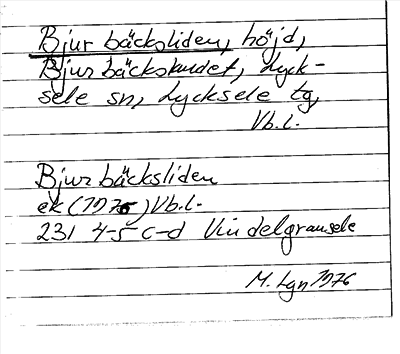 Bjurbäcksliden, höjd,
Bjurbäckskullet, Lyck-
sele sn, Lycksele tg,
Vb.l.
Bjurbäcksliden
ek (1976) Vb.l.
23I 4-5 c-d Vindelgransele
M. Lgn 1976